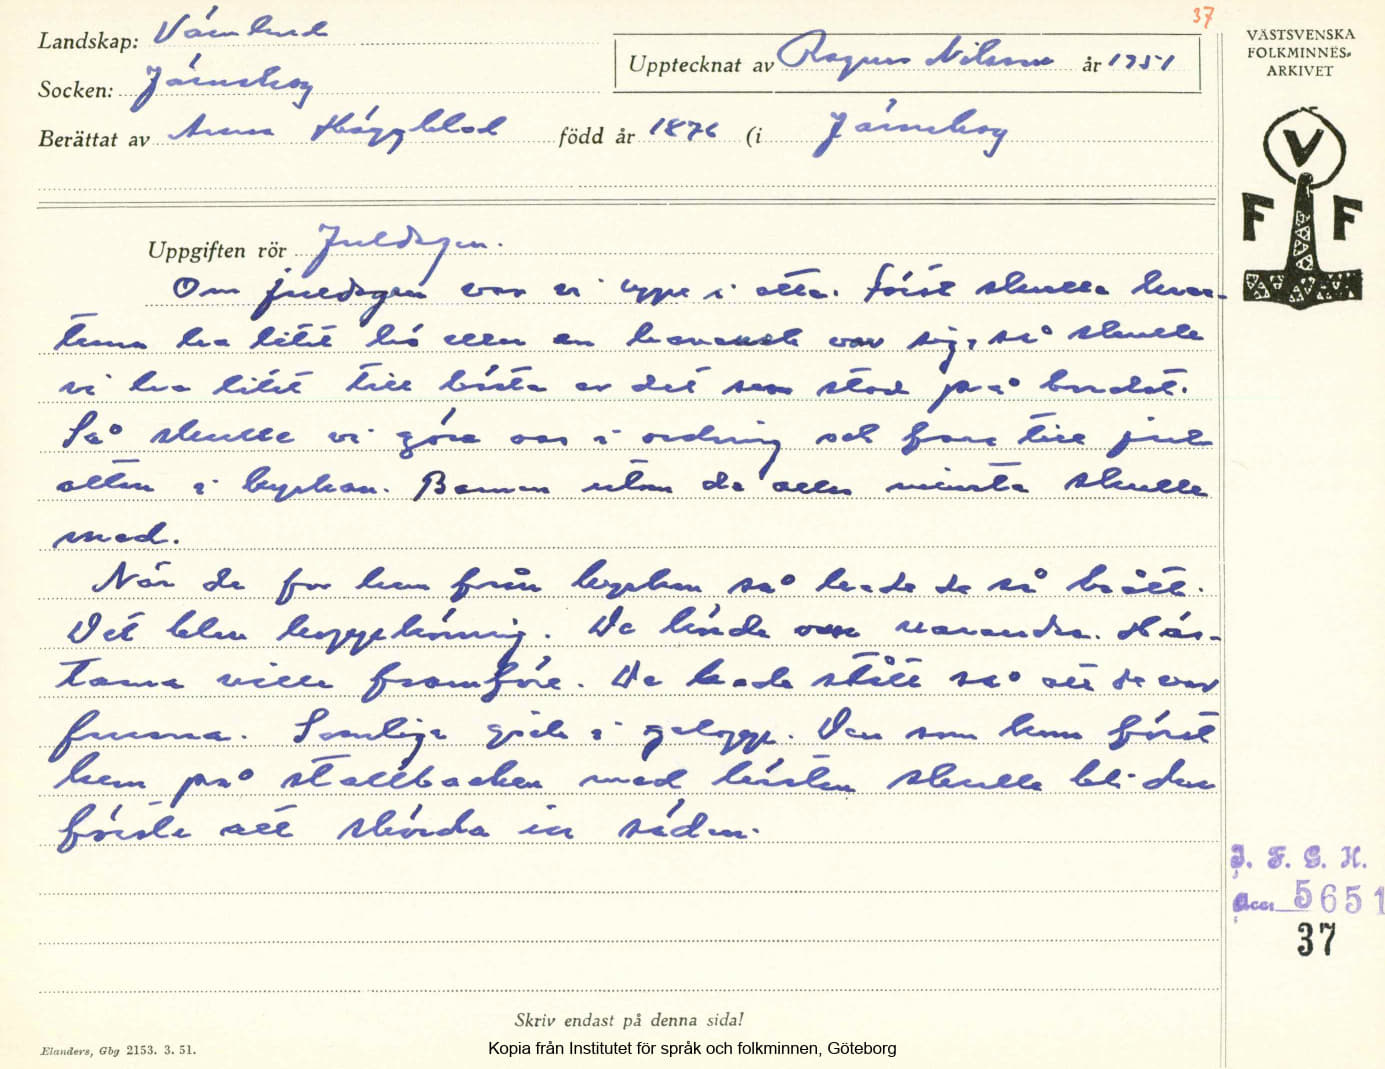 37
Landskap: Värmland
Upptecknat av Ragnar Nilsson år 1951
Socken: Järnskog
Berättat av Anna Häggblad född år 1876 (i Järnskog
VÄSTSVENSKA
FOLKMINNES-
ARKIVET
V
F F
Uppgiften rör Juldagen.
Om juldagen var vi uppe i otta. Först skulle krea-
tura ha litet hö eller en havre var sig, så skulle
vi ha litet till bästa av det som stod på bordet.
Så skulle vi göra oss i ordning och fara till jul
ottan i kyrkan. Barnen utom de allra minsta skulle
med.
När de for hem från kyrkan så hade de så brått.
Det blev kappkörning. De körde om varandra. Häs-
tarna ville framföre. De hade stått så att de var
frusna. Somliga gick i galopp. Den som kom först
hem på stallbacken med hästen skulle bli den
förste att skörda in säden.
I. F. G. H.
Acc. 5651
37
Skriv endast på denna sida!
Elanders, Gbg 2153. 3. 51.
Kopia från Institutet för språk och folkminnen, Göteborg